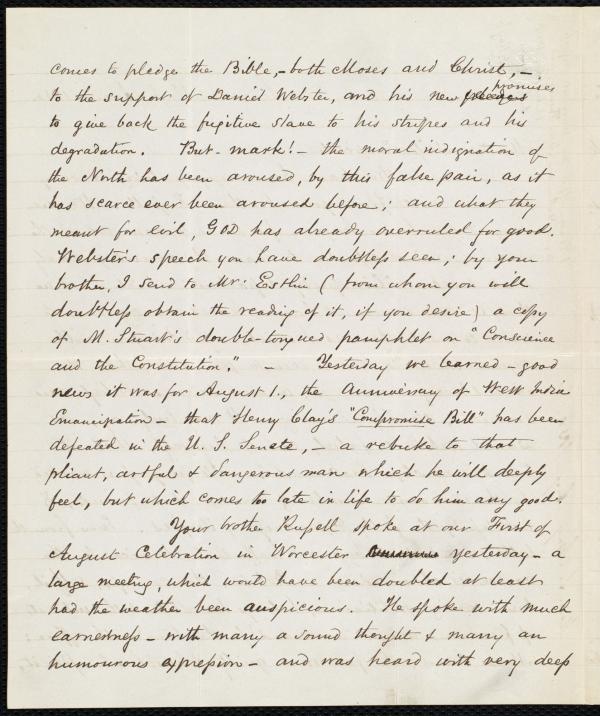 comes to pledge the Bible,- both Moses and Christ,-
to the support of Daniel Webster, and his new promises
to give back the fugitive slave to his stripes and his
degradation. But - mark! - the moral indignation of
the North has been aroused, by this false pair, as it
has scarce ever been aroused before; and what they
meant for evil, GOD has already overruled for good.
Webster's speech you have doubtless seen; by your
brother, I send to Mr. Estlin (from whom you will
doubtless obtain the reading of it, if you desire) a copy
of M. Stuart's double-tongued pamphlet on "Conscience
and the Constitution." - Yesterday we learned - good
news it was for August 1., the Anniversary of West India
Emancipation - that Henry Clay's "Compromise Bill" has been
defeated in the U. S. Senate, - a rebuke to that
pliant, artful & dangerous man which he will deeply
feel, but which comes too late in life to do him any good.
Your brother Russell spoke at our First of
August Celebration in Worcester yesterday - a
large meeting, which would have been doubled at least
had the weather been auspicious. He spoke with much
earnestness - with many a sound thought & many an
humourous expression - and was heard with very deep